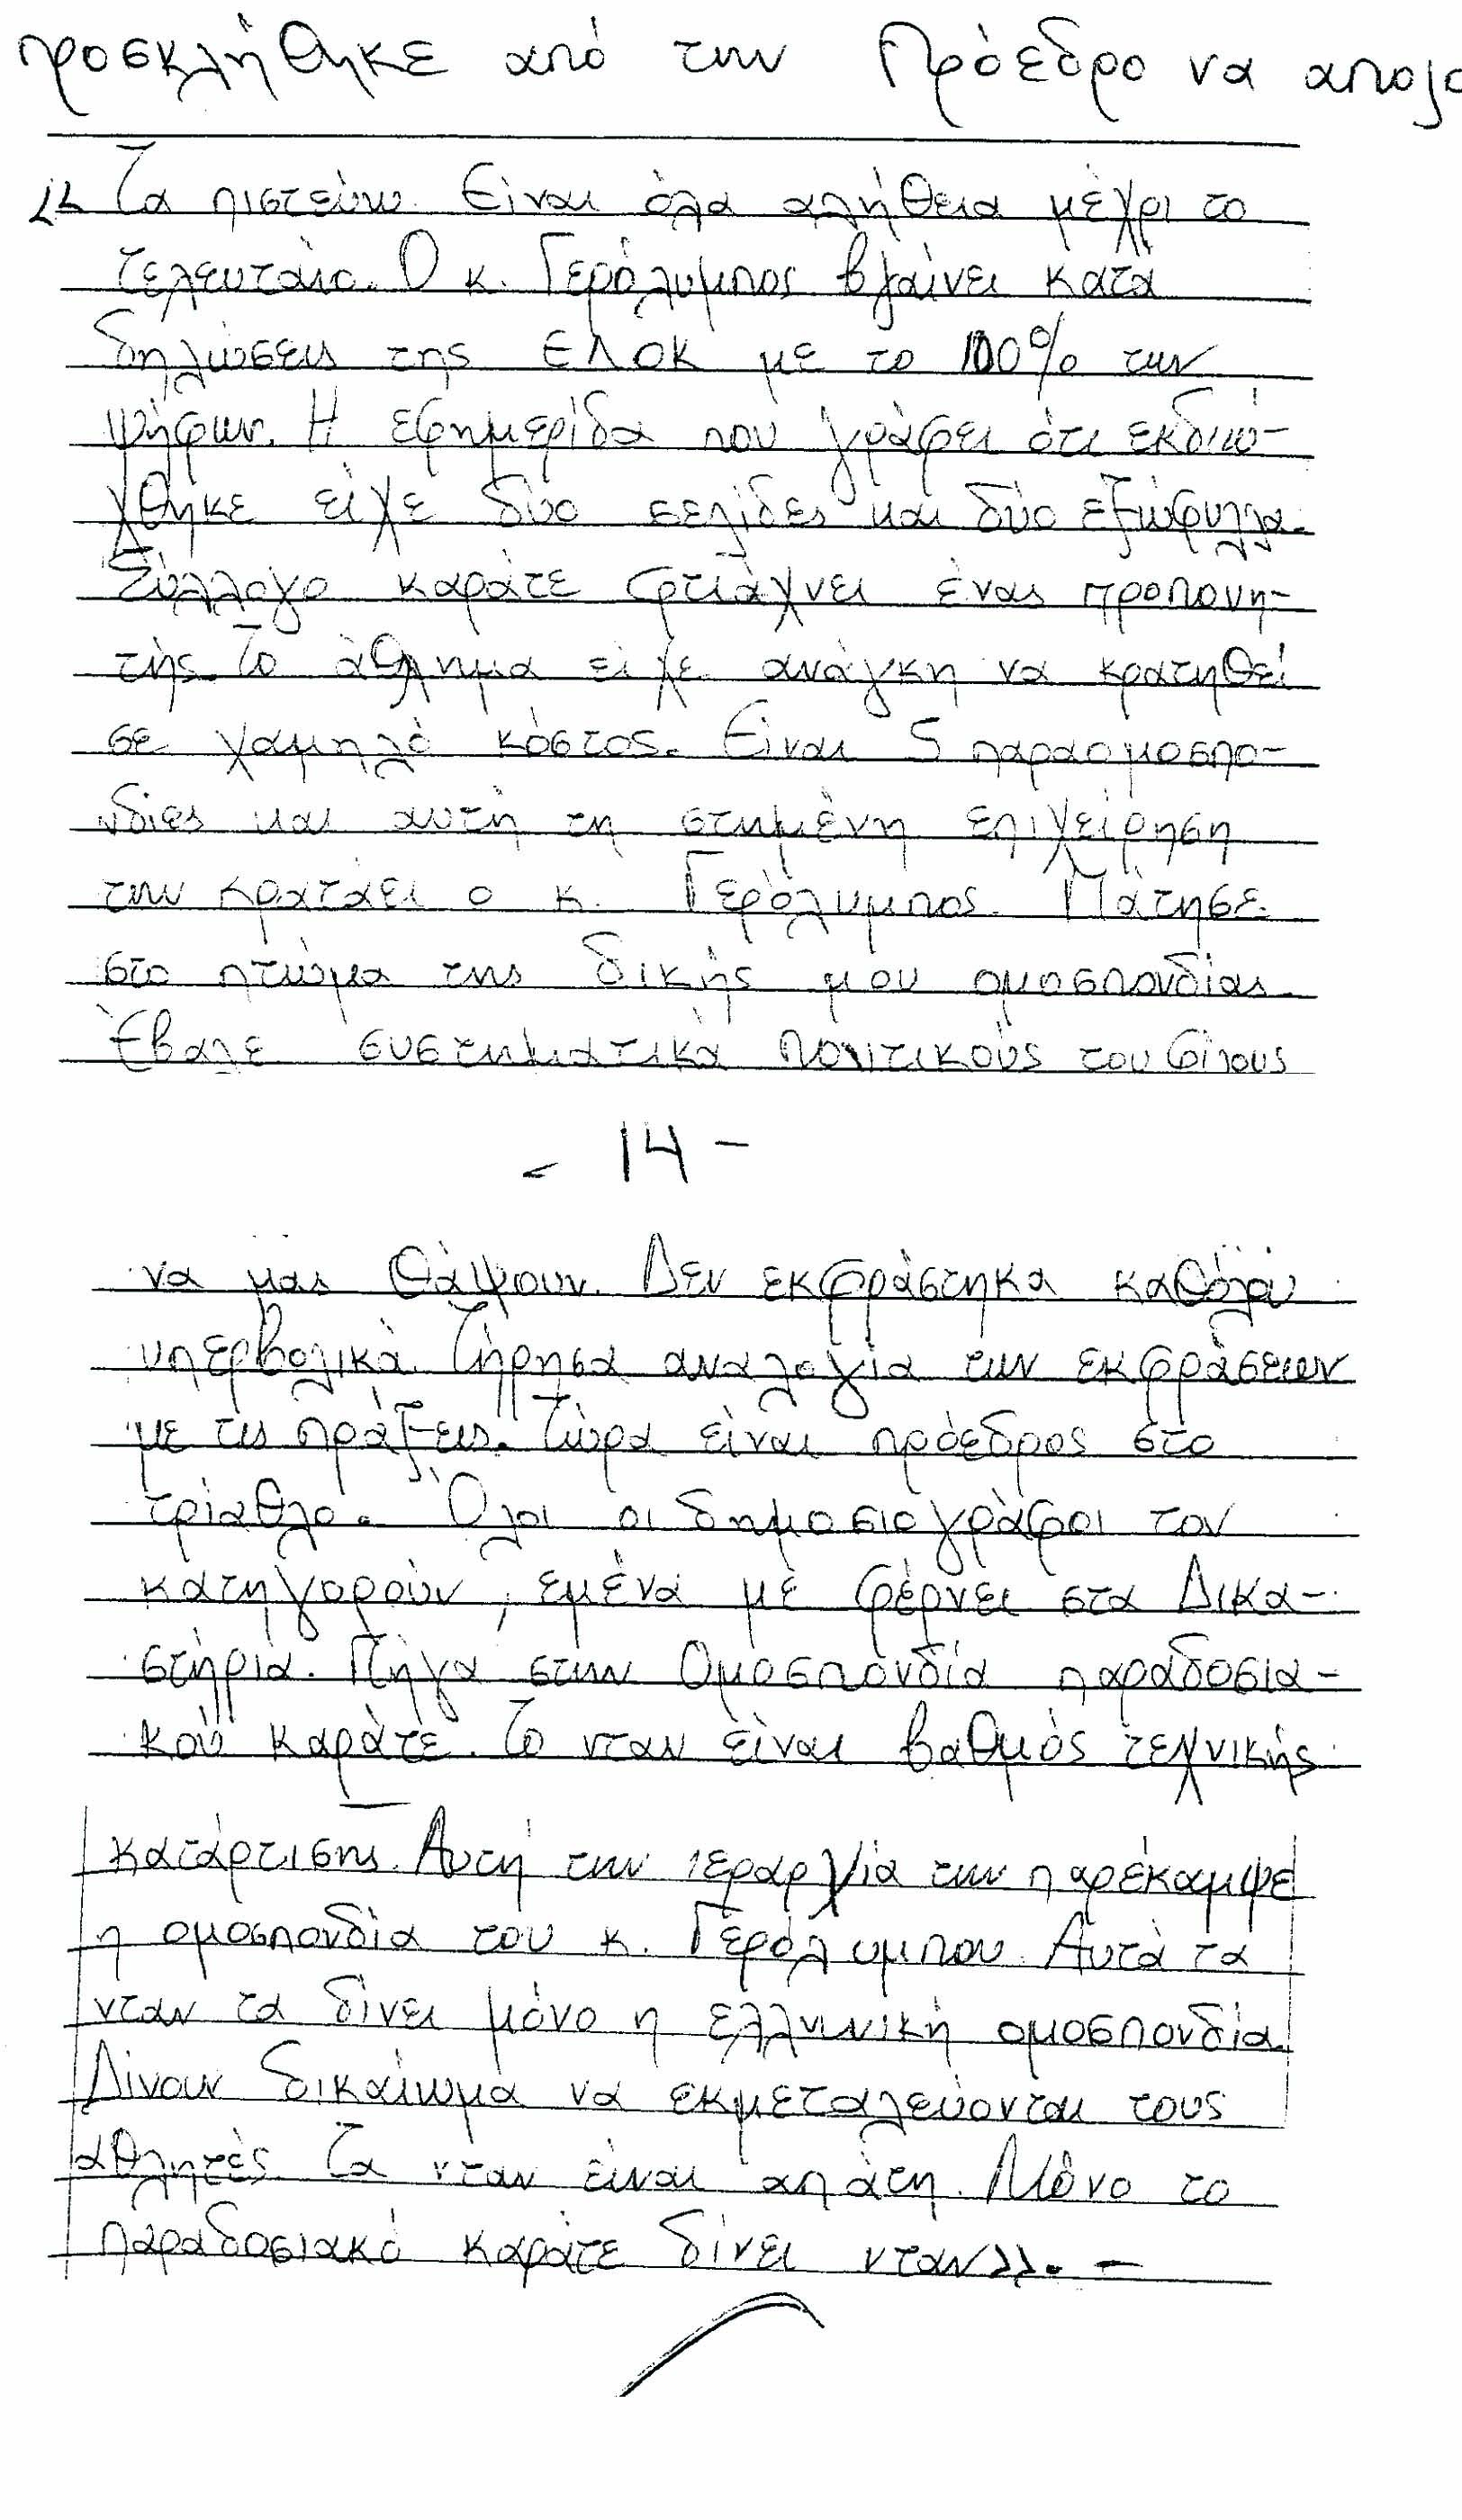 προσκλήθηκε από την Πρόεδρο να απολο
<< Τα πιστεύω. Είναι όλα αλήθεια μέχρι το
τελευταίο. Ο κ. Γερόλυμπος βγαίνει κατά
δηλώσεις της ΕΛΟΚ με το 100% των
ψήφων. Η εφημερίδα που γράφει ότι εκδιώ-
χθηκε είχε δύο σελίδες και δύο εξώφυλλα.
Σύλλογο καράτε φτιάχνει ένας προπονη-
τής. Το άθλημα είχε ανάγκη να κρατηθεί
σε χαμηλό κόστος. Είναι 5 παραομοσπο-
νδίες και αυτή τη στημένη επιχείρηση
την κρατάει ο κ. Γερόλυμπος. Πάτησε
στο πτώμα της δικής μου ομοσπονδίας.
Έβαλε συστηματικά πολιτικούς του φίλους
- 14 -
να μας θάψουν. Δεν εκφράστηκα καθόλου
υπερβολικά. Τήρησα αναλογία των εκφράσεων
με τις πράξεις. Τώρα είναι πρόεδρος στο
τρίαθλο. Όλοι οι δημοσιογράφοι τον
κατηγορούν, εμένα με φέρνει στα Δικα-
στήρια. Πήγα στην Ομοσπονδία παραδοσια-
κού καράτε. Το νταν είναι βαθμός τεχνικής
κατάρτισης. Αυτή την ιεραρχία την παρέκαμψε
η ομοσπονδία του κ. Γερόλυμπου. Αυτά τα
νταν τα δίνει μόνο η ελληνική ομοσπονδία.
Δίνουν δικαίωμα να εκμεταλεύονται τους
αθλητές. Τα νταν είναι απάτη. Μόνο το
παραδοσιακό καράτε δίνει νταν>>. -